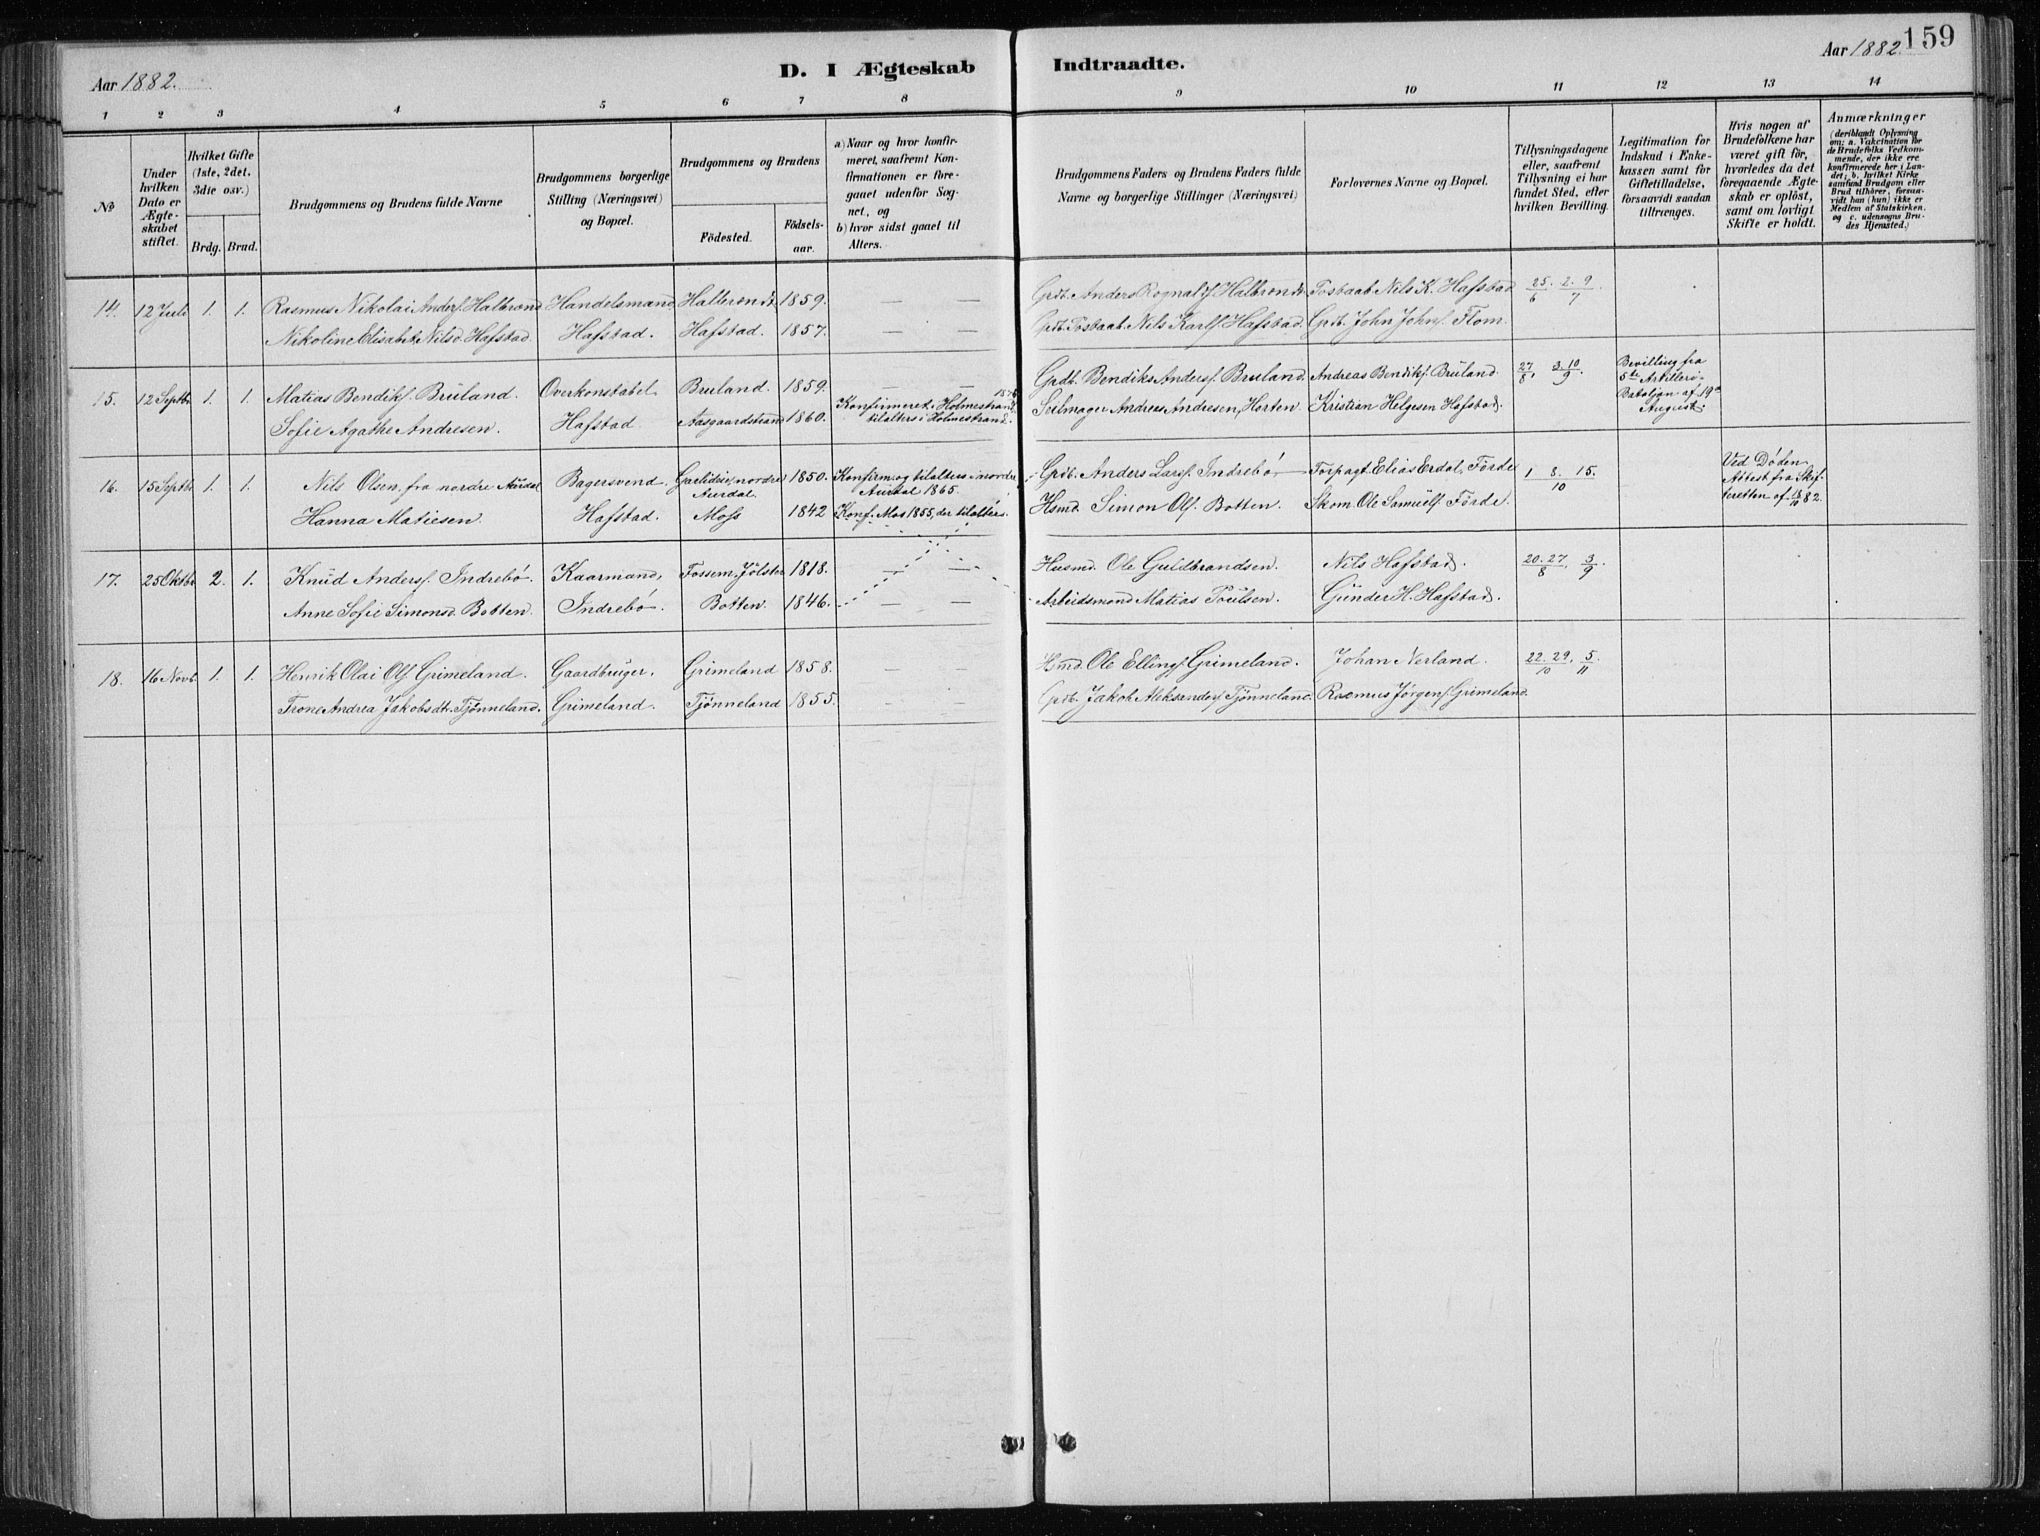 Aar 1882.
D. I Ægteskab
Indtraadte.
Aar 1882.
159
1 2 3 4 5 6 7 8 9 10 11 12 13 14
No
Under hvilken Dato er Ægte-skabet stiftet.
Hvilket Gifte (1ste, 2det, 3die osv.)
Brdg. Brud.
Brudgommens og Brudens fulde Navne
Brudgommens borgerlige Stilling (Næringsvei) og Bopæl.
Brudgommens og Brudens
Födested.
Födsels-aar.
a) Naar og hvor konfir-meret, saafremt Kon-firmationen er fore-gaaet udenfor Sog-net, og
b) hvor sidst gaaet til Alters.
Brudgommens Faders og Brudens Faders fulde Navne og borgerlige Stillinger (Næringsvei)
Forlovernes Navne og Bopæl.
Tillysningsdagene eller, saafremt Tillysning ei har fundet Sted, efter hvilken Bevilling.
Legitimation for Indskud i Enke-kassen samt for Giftetilladelse, forsaavidt saadan tiltrænges.
Hvis nogen af Brudefolkene har været gift för, hvorledes da det foregaaende Ægte-skab er oplöst, samt om lovligt Skifte er holdt.
Anmærkninger (deriblandt Oplysning om: a. Vakcination for de Brudefolks Vedkom-mende, der ikke ere konfirmerede her i Lan-det; b. hvilket Kirke-samfund Brudgom eller Brud tilhører, forsaa-vidt han (hun) ikke er Medlem af Statskirken, og c. udensogns Bru-des Hjemsted.)
14. 12 Juli 1. 1. Rasmus Nikolai Anders. Halbrend Handelsmand, Halbrend. 1859. — — Grdb. Anders Rognalds. Halbrend. Postaab. Nils K. Hafstad 25/6 2. 9/7
Nikoline Elisabet Nilsd. Hafstad. Hafstad. Hafstad. 1857. — — Grdb. Postaab. Nils Karls. Hafstad. Grdb. John Johns. Flom.
15. 12 Septbr 1. 1. Matias Bendiks. Bruland. Overkonstabel Bruland. 1859. — — Grdb. Bendiks Anders. Bruland. Andreas Bendiks. Bruland. 27/8, 3. 10/9. Bevilling fra 5te Artilleri-Bataljon af 19de August.
Sofie Agathe Andresen. Hafstad. Aasgaardstrand 1860. Konfirmeret i Holmestrand tilalters i Holmestrand. Seilmager Andreas Andresen, Horten. Kristian Helgesen Hafstad.
16. 15 Septbr 1. 1. Nils Olsen, fra nordre Aurdal Bagersvend. nordre Aurdal. 1850. Konfirm. og tilalters i nordre Aurdal 1865. Grdb. Anders Lars. Indrebö Forpagt. Elias Erdal, Förde 1 8. 15./10 Ved Döden. Attest fra Skif-teretten af 82.
Hanna Matiesen. Hafstad. Moss 1842 Konf. Mos 1855, der tilalters. Hsmd. Simon Ols. Botten. Skom. Ole Samuels. Förde.
17. 25 Oktbr 2. 1. Knud Anders. Indrebö. Kaarmand, Fossem, Jölster 1818. — — Husmd. Ole Guldbrandsen. Nils Hafstad. 20. 27/8, 3/9.
Anne Sofie Simonsd. Botten. Indrebö. Botten. 1846. — — Arbeidsmand Matias Poulsen. Gunder H. Hafstad.
18. 16 Novb. 1. 1. Henrik Olai Ols. Grimeland. Gaardbruger, Grimeland 1858. — — Hmd. Ole Ellings. Grimeland. Johan Nerland. 22. 29/10, 5/11.
Trone Andrea Jakobsdtr. Tjönneland. Grimeland. Tjönneland 1855. — — Grdb. Jakob Aleksanders. Tjönneland. Rasmus Jörgens. Grimeland